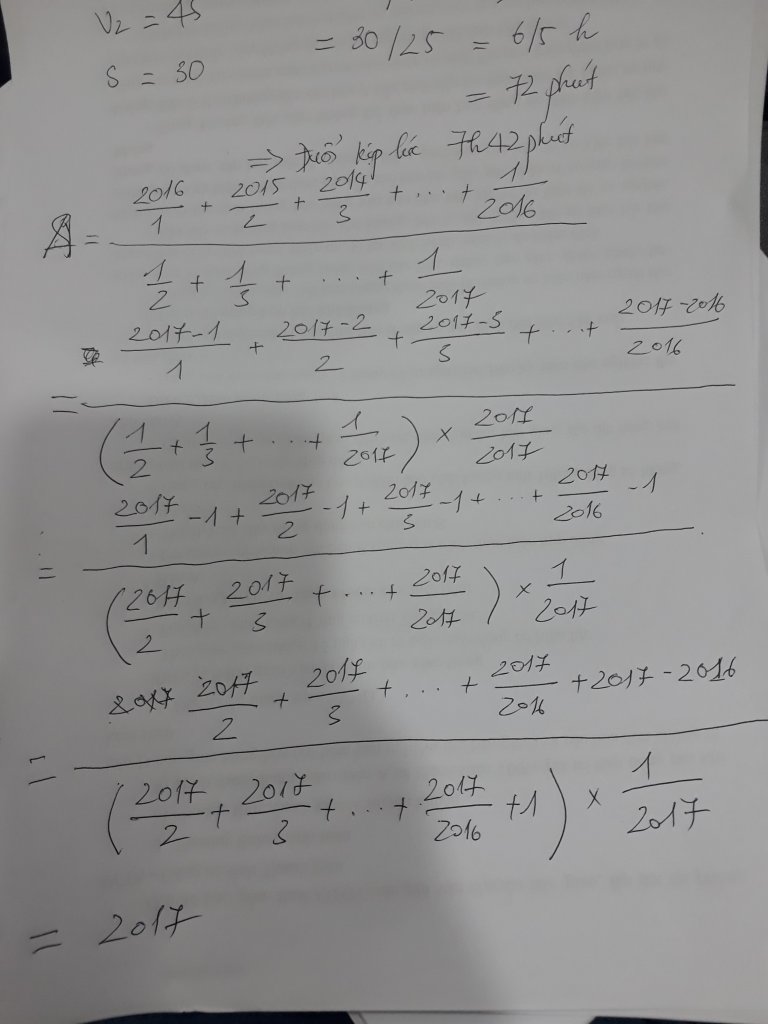 V2 = 45
= 30/25 = 6/5 h
S = 30
= 72 phút
=> Đuổi kịp lúc 7h42 phút
A = (2016/1 + 2015/2 + 2014/3 + ... + 1/2016) / (1/2 + 1/3 + ... + 1/2017)
= ((2017-1)/1 + (2017-2)/2 + (2017-3)/3 + ... + (2017-2016)/2016) / ((1/2 + 1/3 + ... + 1/2017) × 2017/2017)
= (2017/1 - 1 + 2017/2 - 1 + 2017/3 - 1 + ... + 2017/2016 - 1) / ((2017/2 + 2017/3 + ... + 2017/2017) × 1/2017)
= (2017/2 + 2017/3 + ... + 2017/2016 + 2017 - 2016) / ((2017/2 + 2017/3 + ... + 2017/2016 + 1) × 1/2017)
= 2017